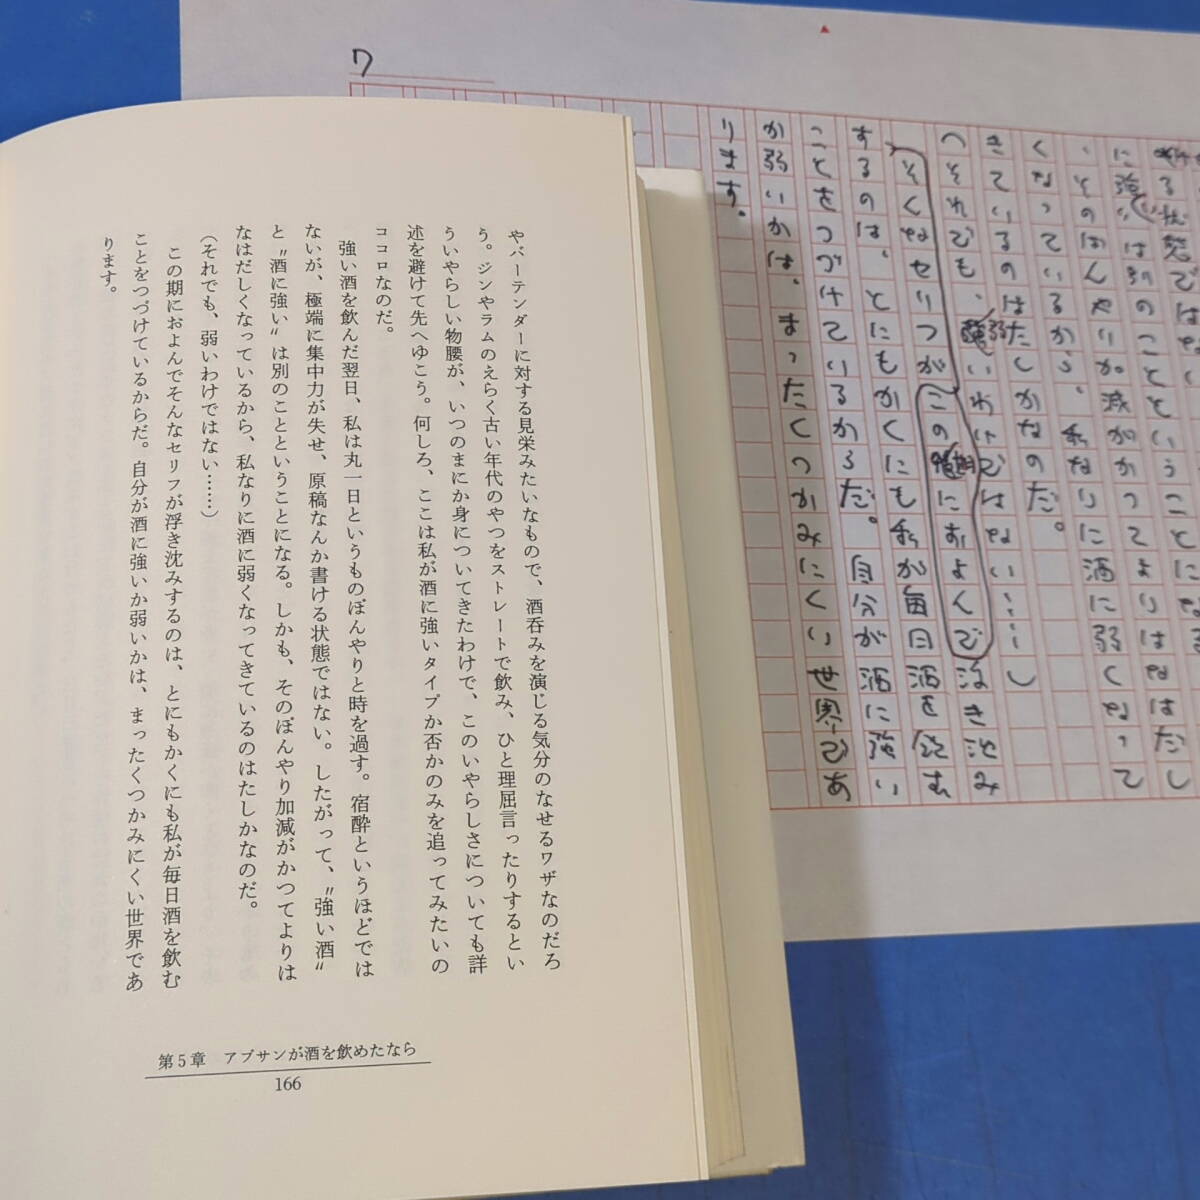 やバーテンダーに対する見栄みたいなもので、酒呑みを演じる気分のなせるワザなのだろ
う。ジンやラムのえらく古い年代のやつをストレートで飲み、ひと理屈言ったりするとい
ういやらしい物腰が、いつのまにか身についてきたわけで、このいやらしさについても詳
述を避けて先へゆこう。何しろ、ここは私が酒に強いタイプか否かのみを追ってみたいの
ココロなのだ。
強い酒を飲んだ翌日、私は丸一日というものぼんやりと時を過す。宿酔というほどでは
ないが、極端に集中力が失せ、原稿なんか書ける状態ではない。したがって、〝強い酒〟
と〝酒に強い〟は別のことということになる。しかも、そのぼんやり加減がかつてよりは
なはだしくなっているから、私なりに酒に弱くなってきているのはたしかなのだ。
(それでも、弱いわけではない……)
この期におよんでそんなセリフが浮き沈みするのは、とにもかくにも私が毎日酒を飲む
ことをつづけているからだ。自分が酒に強いか弱いかは、まったくつかみにくい世界であ
ります。
第5章 アブサンが酒を飲めたなら
166
7
ける状態では
に強い〟は別のことということになる
、そのぼんやり加減がかつてよりはなはだし
くなっているから、私なりに酒に弱くなって
きているのはたしかなのだ。
「それでも、弱いわけではない……」
そんなセリフがこの期におよんで浮き沈み
するのは、とにもかくにも私が毎日酒を飲む
ことをつづけているからだ。自分が酒に強い
か弱いかは、まったくつかみにくい世界であ
ります。